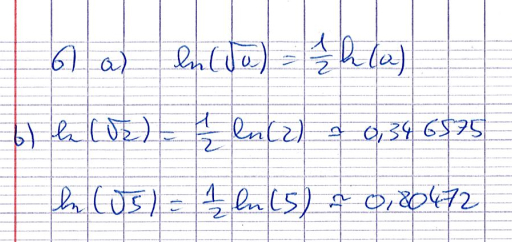 6) a) ln(√a) = 1/2 ln(a)
b) ln(√2) = 1/2 ln(2) ≃ 0,346575
ln(√5) = 1/2 ln(5) ≃ 0,80472